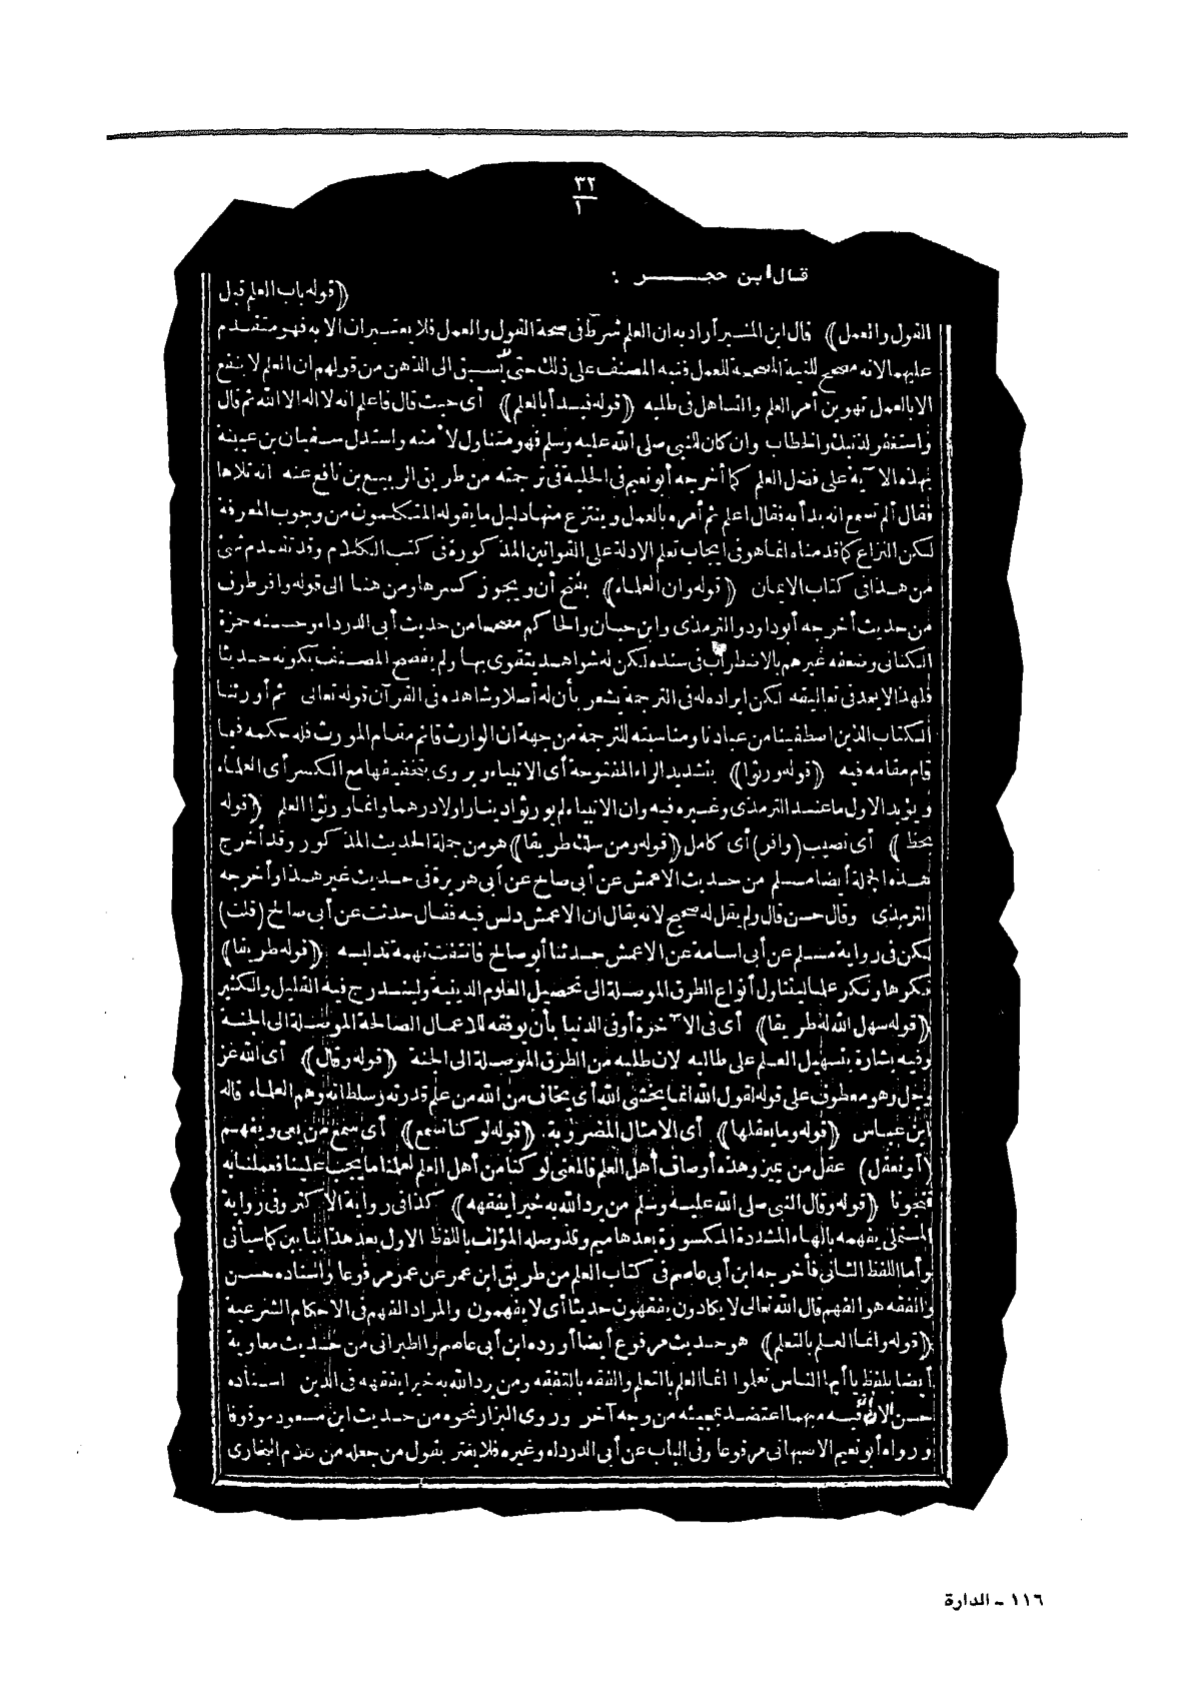 ٣٢
١
قال ابن حجر :
(قوله باب العلم قبل
القول والعمل) قال ابن المنير أراد به ان العلم شرط في صحة القول والعمل فلا يعتبران الا به فهو متقدم
عليهما لانه مصحح للنية المصححة للعمل فنبه المصنف على ذلك حتى لا يسبق الى الذهن من قولهم ان العلم لا ينفع
الا بالعمل تهوين أمر العلم والتساهل في طلبه (قوله فبدأ بالعلم) أى حيث قال فاعلم انه لا اله الا الله ثم قال
واستغفر لذنبك والخطاب وان كان للنبي صلى الله عليه وسلم فهو متناول لامته واستدل سفيان بن عيينة
بهذه الآية على فضل العلم كما أخرجه أبو نعيم في الحلية في ترجمته من طريق الربيع بن نافع عنه انه تلاها
فقال ألم تسمع انه بدأ به فقال اعلم ثم أمره بالعمل وينتزع منها دليل ما يقوله المتكلمون من وجوب المعرفة
لكن النزاع كما قدمناه انما هو في ايجاب تعلم الادلة على القوانين المذكورة في كتب الكلام وقد تقدم شئ
من هذا في كتاب الايمان (قوله وان العلماء) بفتح أن ويجوز كسرها ومن هنا الى قوله وافر طرف
من حديث أخرجه أبو داود والترمذى وابن حبان والحاكم مصححا من حديث أبي الدرداء وحسنه حمزة
الكنانى وضعفه غيرهم بالاضطراب في سنده لكن له شواهد يتقوى بها ولم يفصح المصنف بكونه حديثا
فلهذا لا يعد في تعاليقه لكن ايراده له في الترجمة يشعر بأن له أصلا وشاهده في القرآن قوله تعالى ثم أورثنا
الكتاب الذين اصطفينا من عبادنا ومناسبته للترجمة من جهة ان الوارث قائم مقام المورث فله حكمه فيما
قام مقامه فيه (قوله ورثوا) بتشديد الراء المفتوحة أى الانبياء ويروى بتخفيفها مع الكسر أى العلماء
ويؤيد الاول ما عند الترمذى وغيره فيه وان الانبياء لم يورثوا دينارا ولا درهما وانما ورثوا العلم (قوله
بحظ) أى نصيب (وافر) أى كامل (قوله ومن سلك طريقا) هو من جملة الحديث المذكور وقد أخرج
هذه الجملة أيضا مسلم من حديث الاعمش عن أبي صالح عن أبي هريرة في حديث غير هذا وأخرجه
الترمذى وقال حسن قال ولم يقل له صحيح لانه يقال ان الاعمش دلس فيه فقال حدثت عن أبي صالح (قلت)
لكن في رواية مسلم عن أبي اسامة عن الاعمش حدثنا أبو صالح فانتفت تهمة تدليسه (قوله طريقا)
نكرها ونكر علما ليتناول أنواع الطرق الموصلة الى تحصيل العلوم الدينية وليندرج فيه القليل والكثير
(قوله سهل الله له طريقا) أى في الآخرة أو في الدنيا بأن يوفقه للاعمال الصالحة الموصلة الى الجنة
وفيه بشارة بتسهيل العلم على طالبه لان طلبه من الطرق الموصلة الى الجنة (قوله وقال) أى الله عز
وجل وهو معطوف على قوله لقول الله انما يخشى الله أى يخاف من الله من علم قدرته وسلطانه وهم العلماء قاله
ابن عباس (قوله وما يعقلها) أى الامثال المضروبة. (قوله لو كنا نسمع) أى سمع من يعي ويفهم
(أو نعقل) عقل من يميز وهذه أوصاف أهل العلم فالمعنى لو كنا من أهل العلم لعلمنا ما يجب علينا فعملنا به
فنجونا (قوله وقال النبي صلى الله عليه وسلم من يرد الله به خيرا يفقهه) كذا في رواية الاكثر وفي رواية
المستملى يفهمه بالهاء المشددة المكسورة بعدها ميم وقد وصله المؤلف باللفظ الاول بعد هذا ببابين كما سيأتى
وأما اللفظ الثانى فأخرجه ابن أبي عاصم في كتاب العلم من طريق ابن عمر عن عمر مرفوعا واسناده حسن
والفقه هو الفهم قال الله تعالى لا يكادون يفقهون حديثا أى لا يفهمون والمراد الفهم في الاحكام الشرعية
(قوله وانما العلم بالتعلم) هو حديث مرفوع أيضا أورده ابن أبي عاصم والطبرانى من حديث معاوية
أيضا بلفظ يا أيها الناس تعلموا انما العلم بالتعلم والفقه بالتفقه ومن يرد الله به خيرا يفقهه في الدين اسناده
حسن الا ان فيه مبهما اعتضد بمجيئه من وجه آخر وروى البزار نحوه من حديث ابن مسعود موقوفا
ورواه أبو نعيم الاصبهانى مرفوعا وفي الباب عن أبي الدرداء وغيره فلا يغتر بقول من جعله من كلام البخارى
١١٦ - الدارة